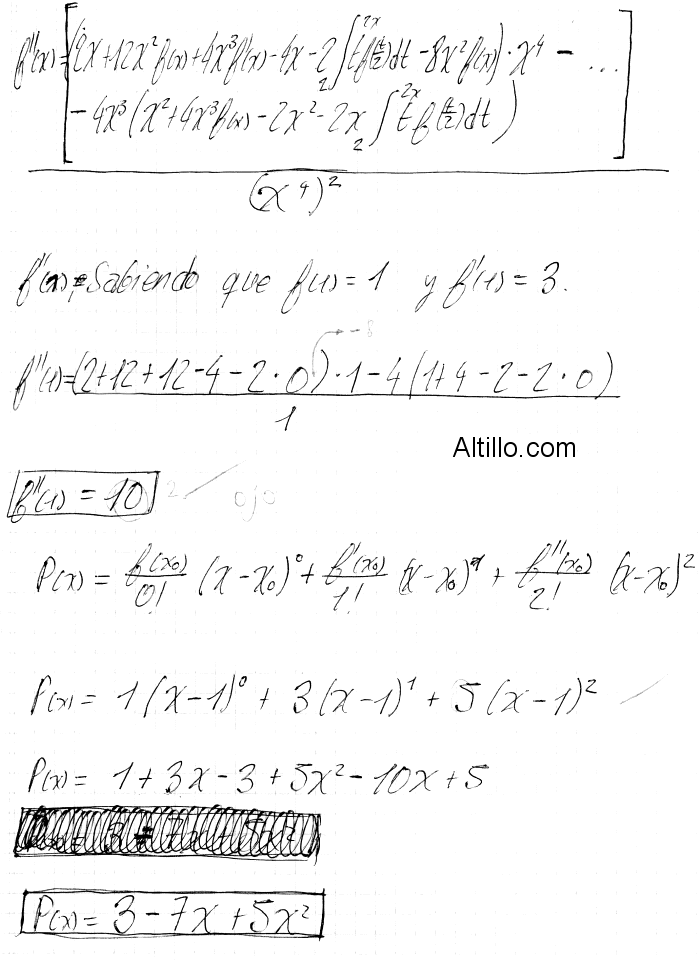 f''(x)=[(2x+12x²f(x)+4x³f'(x)-4x-2∫₂²ˣtf(t/2)dt-8x²f(x))·x⁴-...
-4x³(x²+4x³f(x)-2x²-2x∫₂²ˣtf(t/2)dt)]
(x⁴)²
f''(x)=Sabiendo que f(1)=1 y f'(1)=3.
→-8
f''(1)=(2+12+12-4-2·0)·1-4(1+4-2-2·0)
1
Altillo.com
f''(1)=10 2 ojo
P(x)=f(x₀)/0!(x-x₀)⁰+f'(x₀)/1!(x-x₀)¹+f''(x₀)/2!(x-x₀)²
P(x)=1(x-1)⁰+3(x-1)¹+5(x-1)²
P(x)=1+3x-3+5x²-10x+5
P(x)=3-7x+5x²